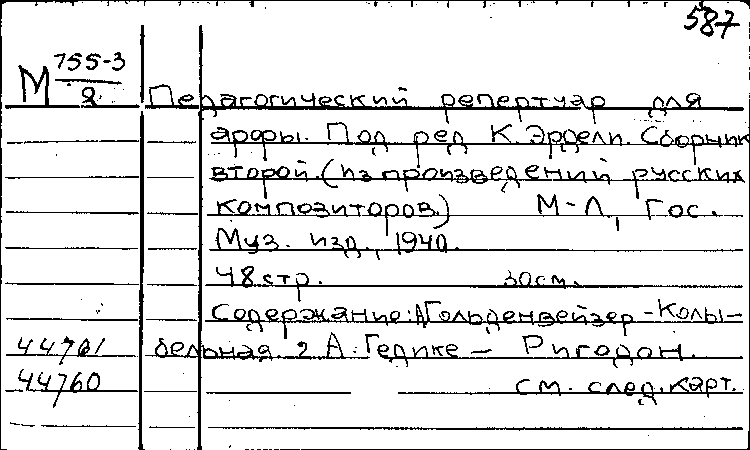 587
М 755-3
2
Педагогический репертуар для
арфы. Под ред К. Эрдели. Сборник
второй. (из произведений русских
композиторов.) М-Л, Гос.
Муз. изд., 1940.
48 стр. 30 см.
Содержание: А Гольденвейзер - Колы-
44761 бельная. 2 А. Гедике - Ригодон.
44760 см. след. карт.